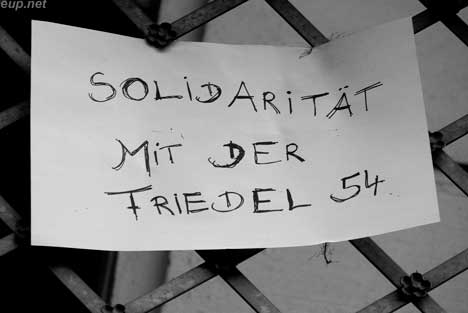 eup.net
SOLIDARITÄT
MIT DER
FRIEDEL 54